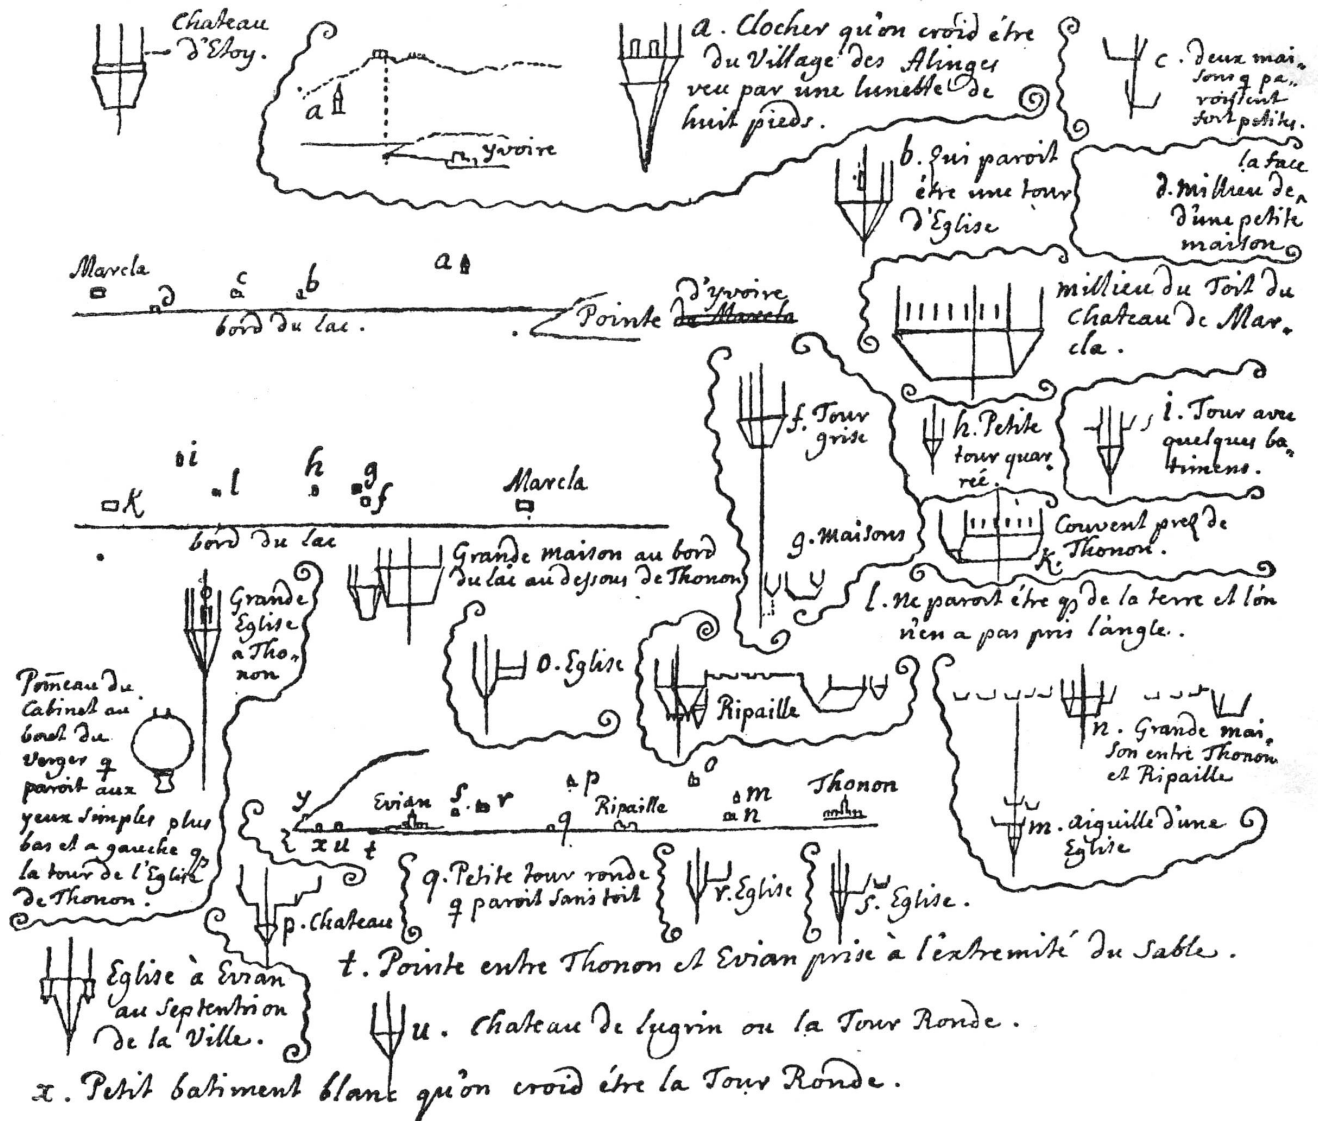 Chateau
d'Etoy.
a
yvoire
a. Clocher qu'on croid étre
du Village des Alinges
veu par une lunette de
huit pieds.
c. deux mai-
sons q pa-
roissent
fort petites.
b. qui paroit
étre une tour
d'Eglise
la face
d. millieu de ^
d'une petite
maison
Marcla
d
c
b
a
bord du lac.
d'yvoire
Pointe de Marcla
millieu du Toit du
Chateau de Mar-
cla.
f. Tour
grise
h. Petite
tour quar-
réé.
i. Tour avec
quelques ba-
timens.
i
K
l
h
g
f
Marcla
bord du lac
g. maisons
Couvent preq de
Thonon.
K.
Grande maison au bord
du lac au dessous de Thonon
l. ne paroit étre q de la terre et l'on
n'en a pas pris l'angle..
Grande
Eglise
a Tho-
non
o. Eglise
Ripaille
n. Grande mai-
son entre Thonon
et Ripaille
m. aiguille d'une
Eglise
Pom̃eau du
Cabinet au
bout du
verger q
paroit aux
yeux simples plus
bas et a gauche q
la tour de l'Eglise
de Thonon.
y
z
x
u
t
Evian
s.
r
p
q
Ripaille
o
m
n
Thonon
p. Chateau
q. Petite tour ronde
q paroit sans toit
r. Eglise
s. Eglise.
t. Pointe entre Thonon et Evian prise à l'extremité du sable.
Eglise à Evian
au septentrion
de la Ville.
u. Chateau de lugrin ou la Tour Ronde.
x. Petit batiment blanc qu'on croid étre la Tour Ronde.